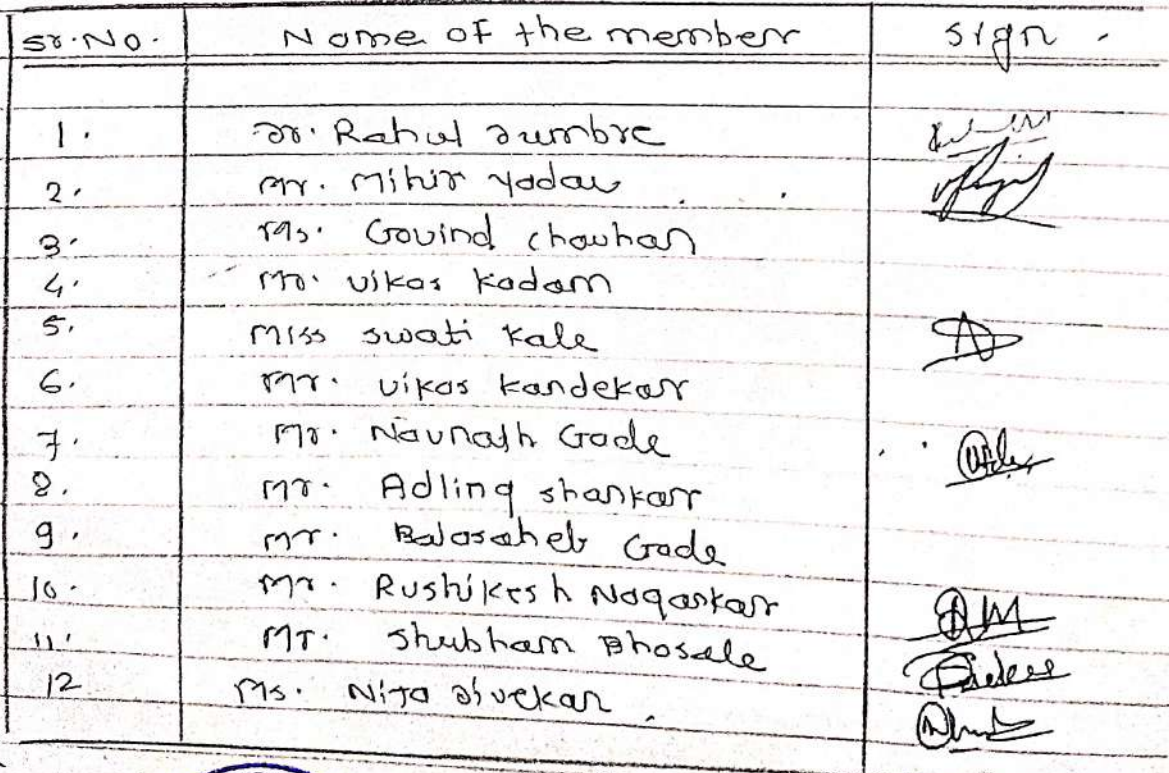 Sr.No. Name of the member sign.
1. Dr. Rahul Dumbre
2. Mr. Mihir Yadav
3. Ms. Govind chauhan
4. Mr. vikas kadam
5. Miss swati kale
6. Mr. vikas kandekar
7. Mr. Navnath Gade
8. Mr. Adling shankar
9. Mr. Balasaheb Gade
10. Mr. Rushikesh Nagarkar
11. Mr. Shubham Bhosale
12 Ms. Nita Divekar